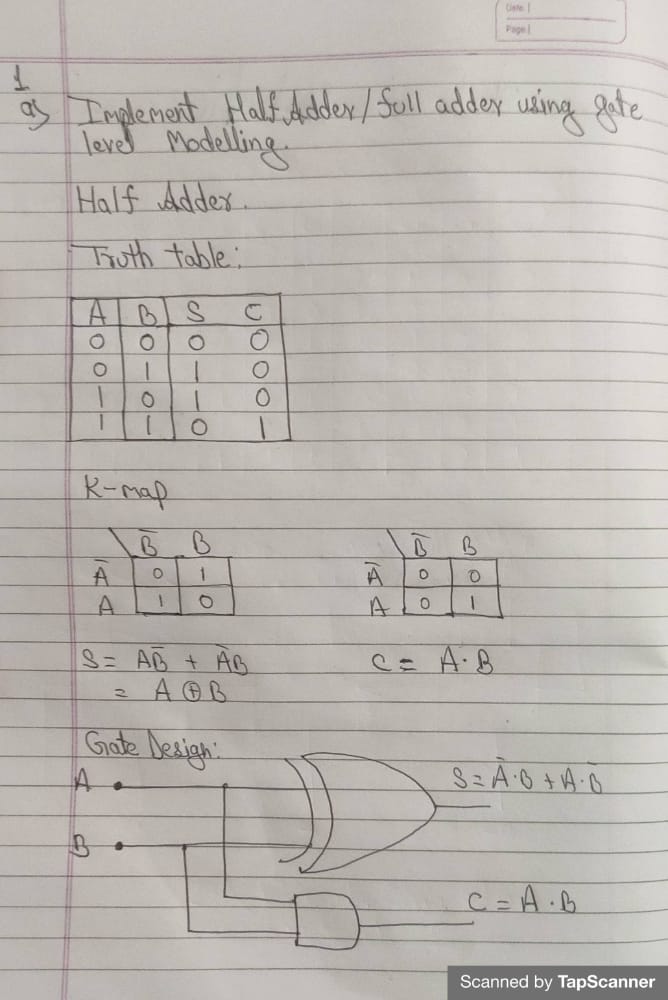 Date |
Page |
1
a) Implement Half Adder/full adder using gate
level Modelling.
Half Adder.
Truth table:
A B S C
0 0 0 0
0 1 1 0
1 0 1 0
1 1 0 1
K-map
B̅ B B̅ B
A̅ 0 1 A̅ 0 0
A 1 0 A 0 1
S = AB̅ + A̅B C = A·B
= A ⊕ B
Gate Design:
A S = A̅·B + A·B̅
B
C = A·B
Scanned by TapScanner